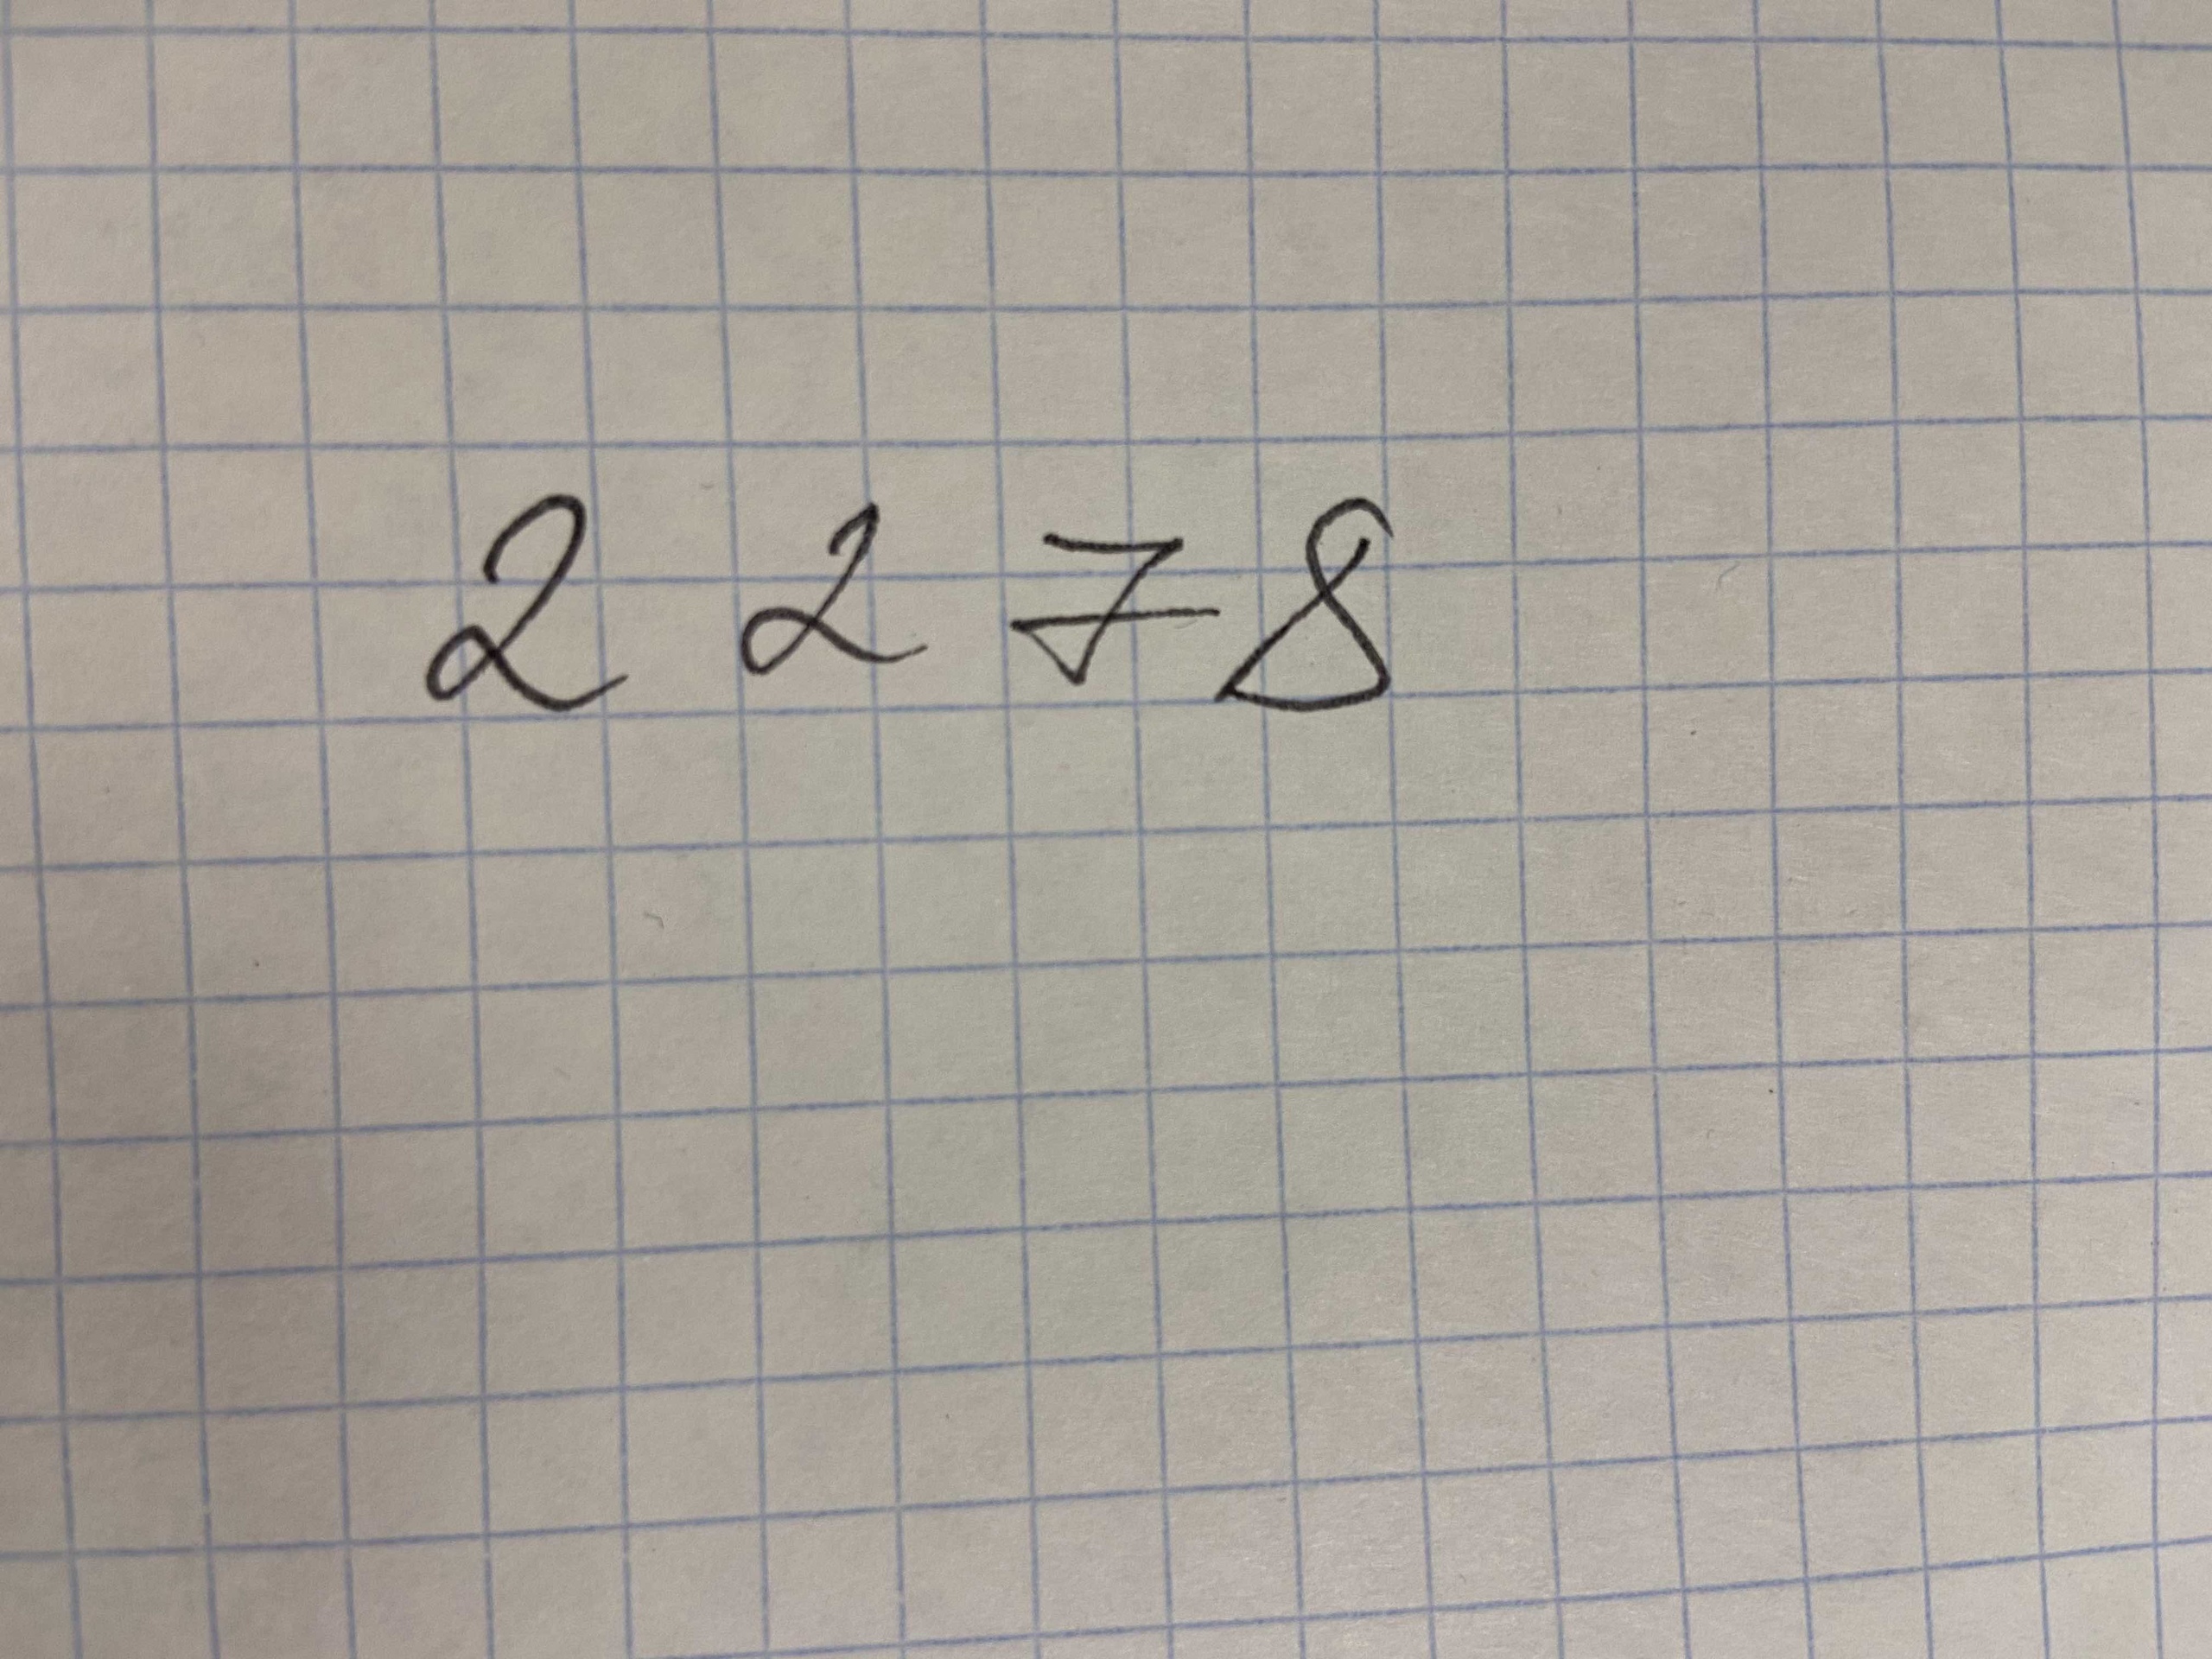 2 2 7 8